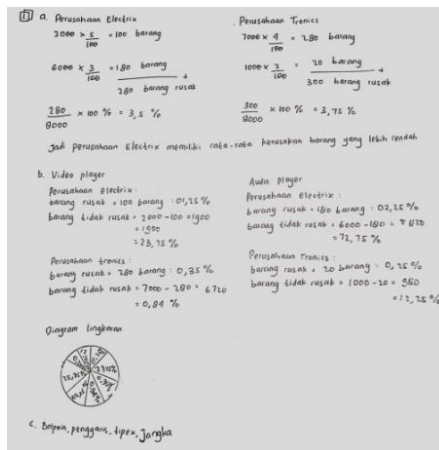 1 a. Perusahaan Electrix
2000 x 5/100 = 100 barang
6000 x 3/100 = 180 barang +
280 barang rusak
280/8000 x 100 % = 3,5 %
Perusahaan Tronics
7000 x 4/100 = 280 barang
1000 x 2/100 = 20 barang +
300 barang rusak
300/8000 x 100 % = 3,75 %
Jadi perusahaan Electrix memiliki rata-rata kerusakan barang yang lebih rendah
b. Video player
Perusahaan electrix :
barang rusak = 100 barang : 01,25 %
barang tidak rusak = 2000 - 100 = 1900
= 1900
= 23,75 %
Perusahaan tronics :
barang rusak = 280 barang : 0,35 %
barang tidak rusak = 7000 - 280 = 6720
= 0,84 %
Audio player
Perusahaan electrix :
barang rusak = 180 barang : 02,25 %
barang tidak rusak = 6000 - 180 = 5820
= 72,75 %
Perusahaan Tronics :
barang rusak = 20 barang : 0,25 %
barang tidak rusak = 1000 - 20 = 980
= 12,25 %
Diagram lingkaran
c. Bolpoin, penggaris, tipex, jangka